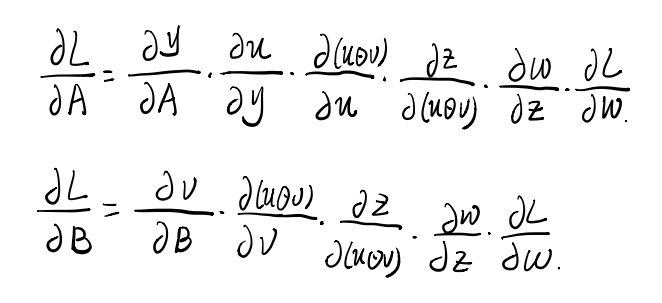 ∂L/∂A = ∂y/∂A · ∂u/∂y · ∂(uθv)/∂u · ∂z/∂(uθv) · ∂w/∂z · ∂L/∂w.
∂L/∂B = ∂v/∂B · ∂(uθv)/∂v · ∂z/∂(uθv) · ∂w/∂z · ∂L/∂w.